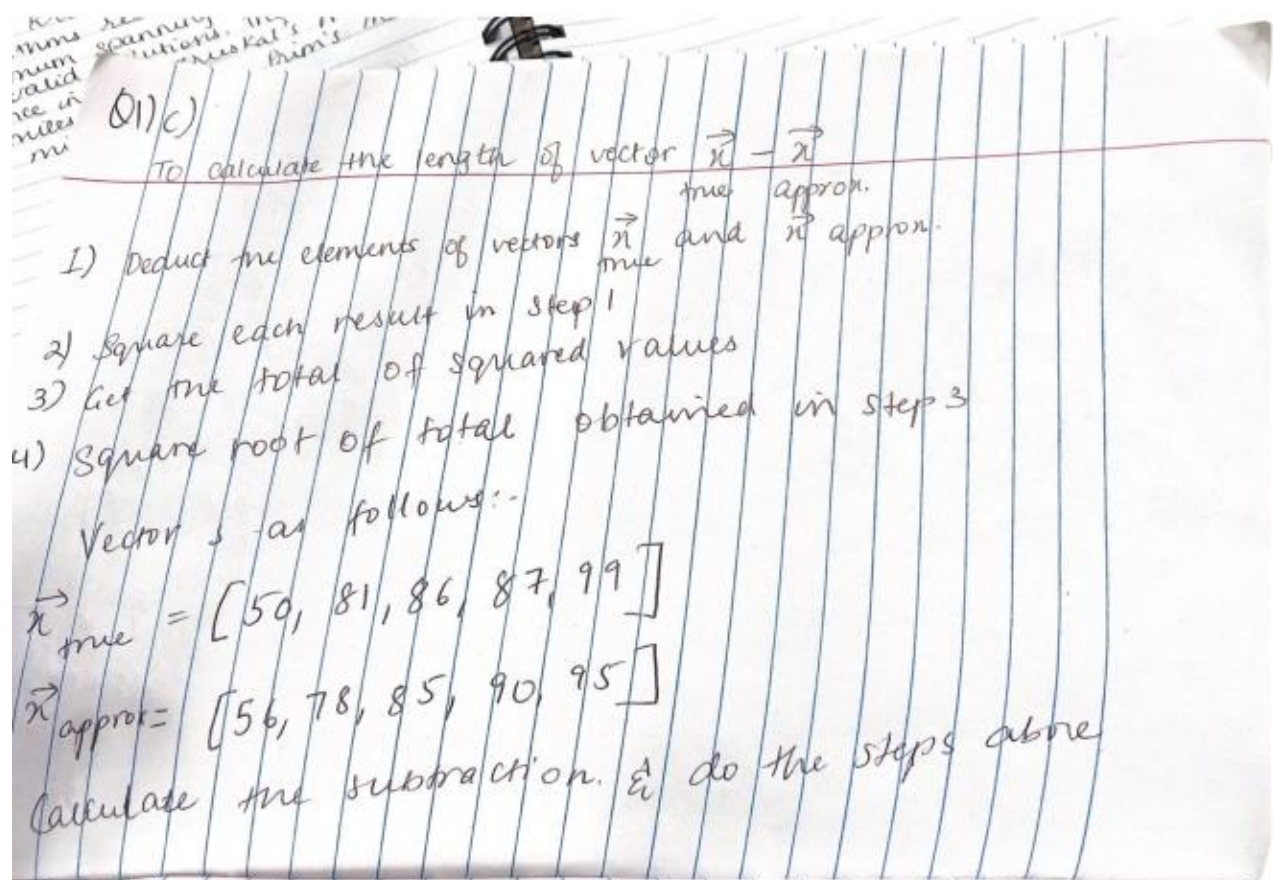 spanning
num
utions.
Kruskal's
valid
Prim's
miles
mi
Q1) c)
To calculate the length of vector x⃗ true - x⃗ approx.
1) Deduct the elements of vectors x⃗ true and x⃗ approx.
2) Square each result in step 1
3) Get the total of squared values
4) Square root of total obtained in step 3
Vector s as follows:-
x⃗ true = [50, 81, 86, 87, 99]
x⃗ approx = [56, 78, 85, 90, 95]
Calculate the subtraction. & do the steps above